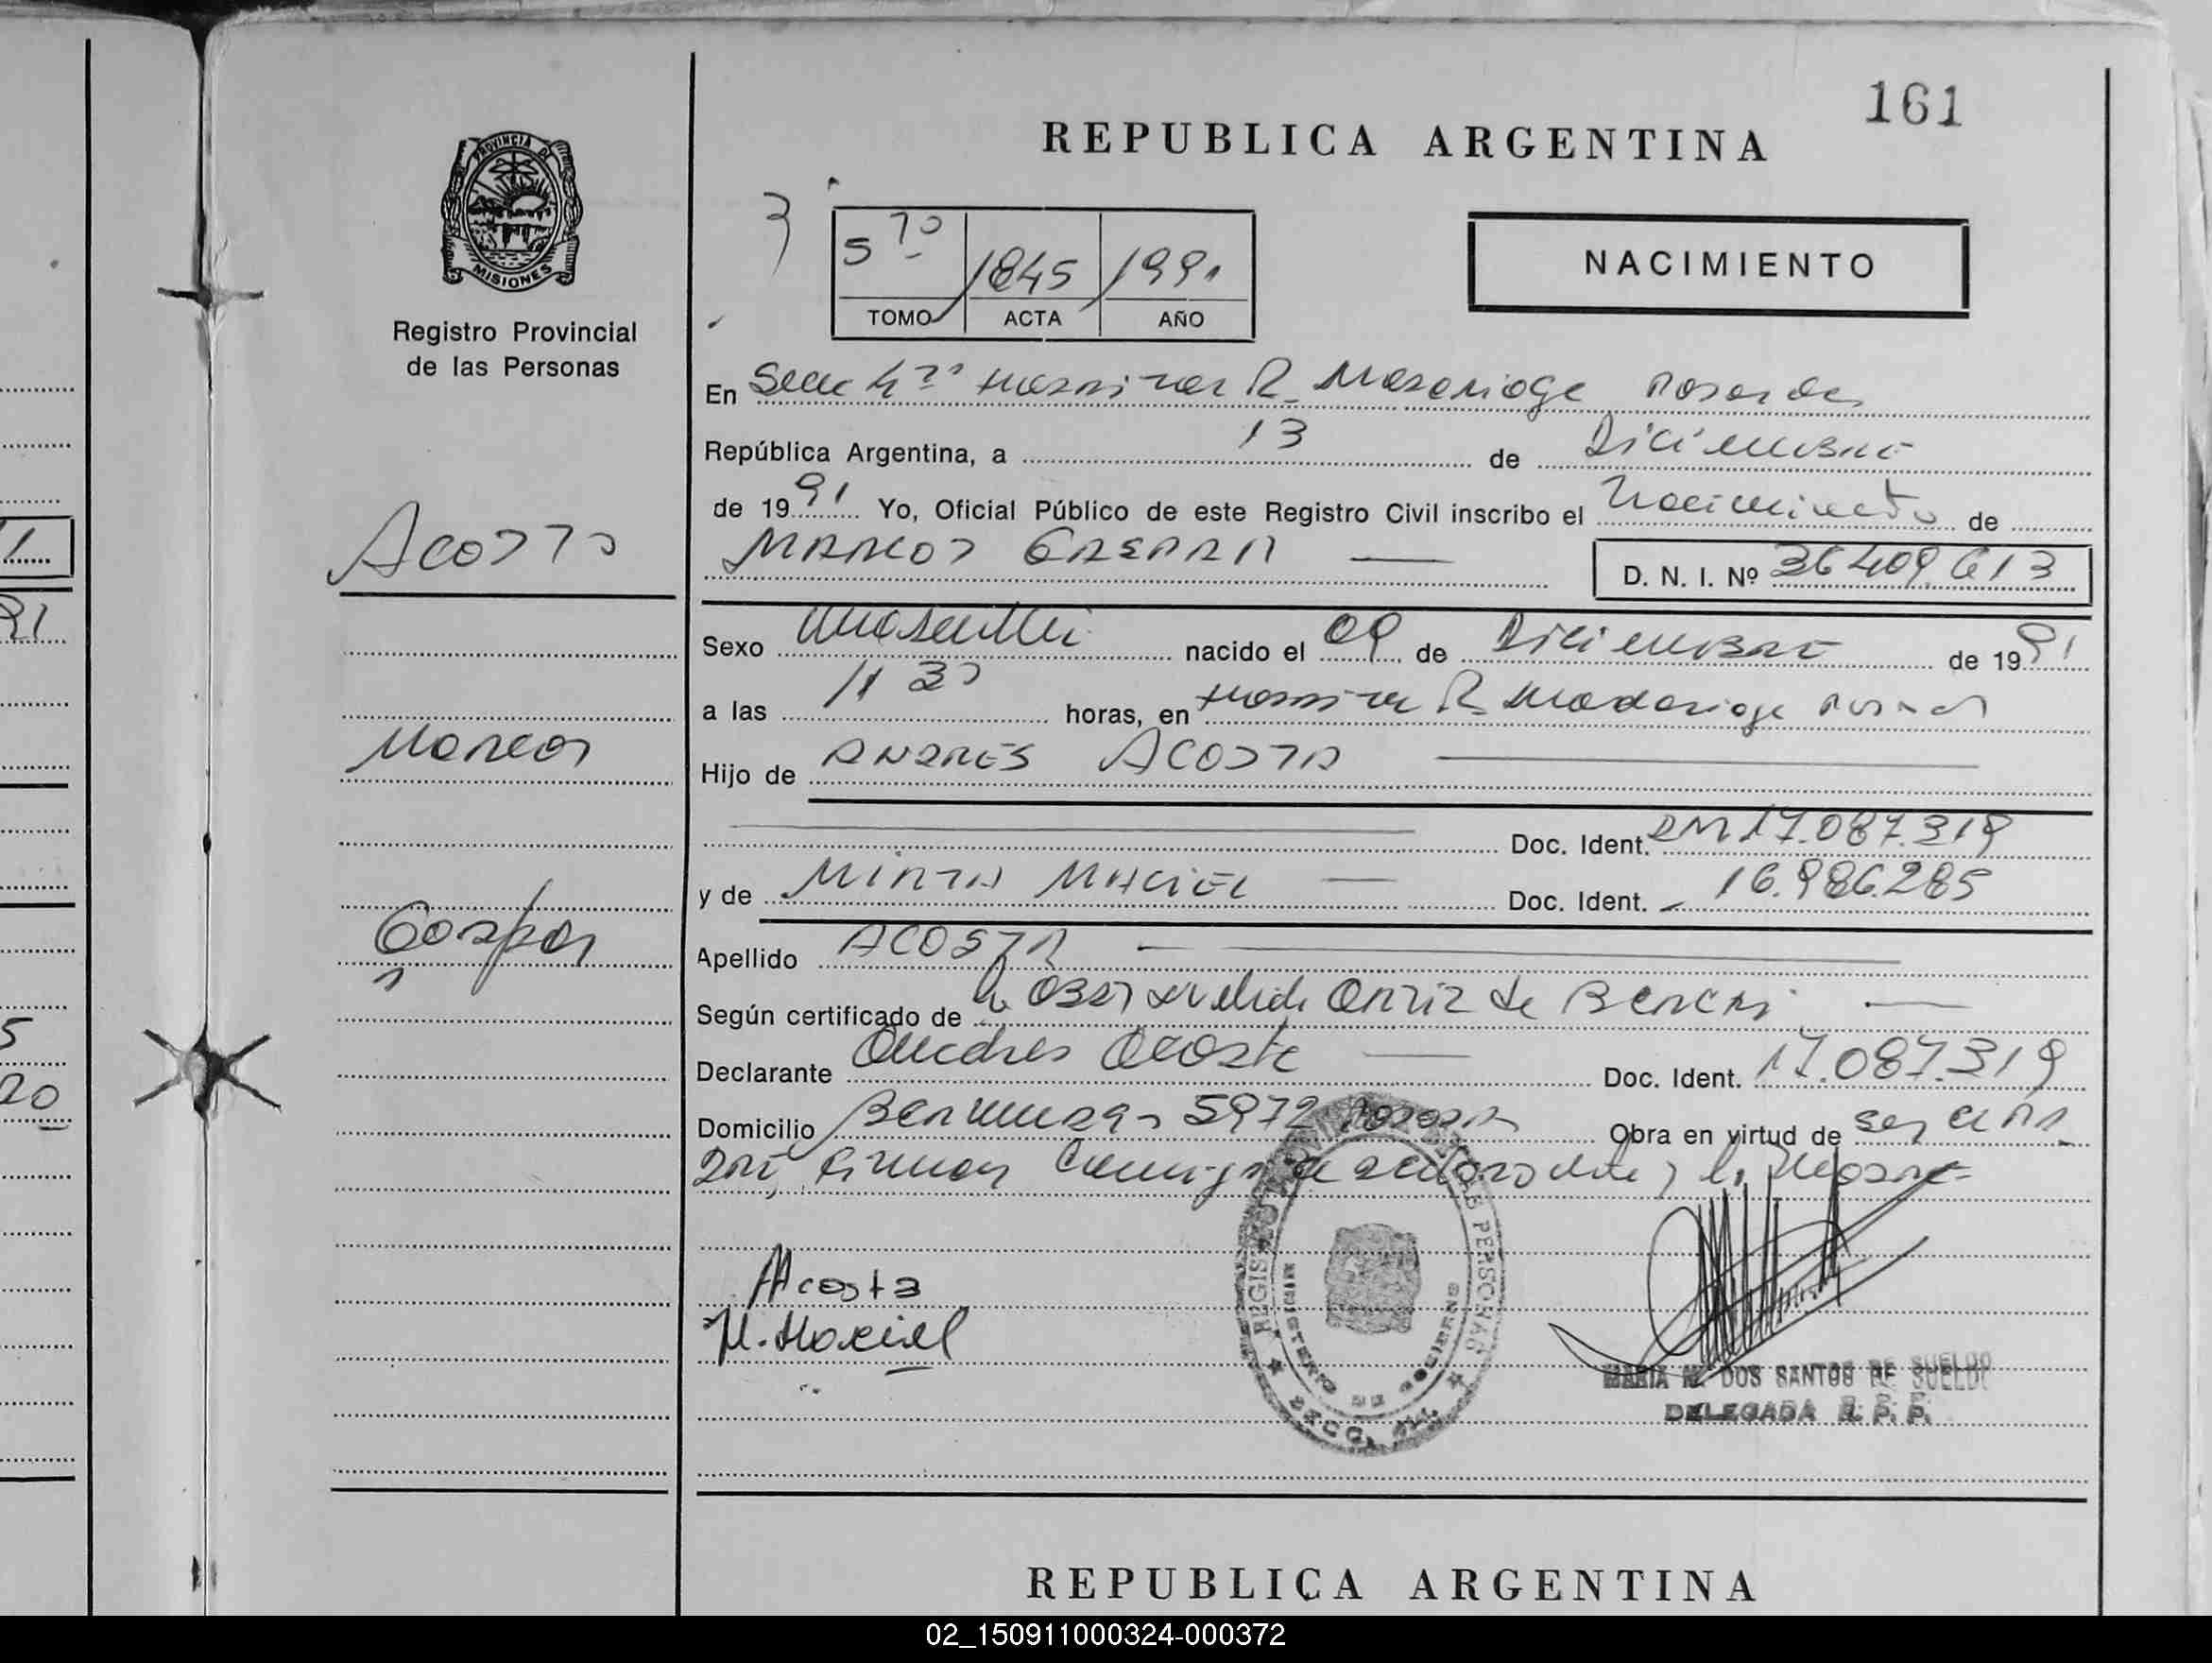 161
REPUBLICA ARGENTINA
PROVINCIA DE
MISIONES
Registro Provincial
de las Personas
5 1845 1991
TOMO ACTA AÑO
NACIMIENTO
En Sede Hospital R. Madariaga Posadas
República Argentina, a 13 de Diciembre
de 1991 Yo, Oficial Público de este Registro Civil inscribo el Nacimiento de
Acosta
MARCOS GASPAR
D. N. I. Nº 36409613
Sexo Masculino nacido el 09 de Diciembre de 1991
a las 11 30 horas, en Hospital R. Madariaga Posadas
Marcos
Hijo de ANDRES ACOSTA
Doc. Ident. DNI 17.087.319
y de MIRTA MACIEL Doc. Ident. 16.986.285
Gaspar
Apellido ACOSTA
Según certificado de Obst Ortiz de
Declarante Andres Acosta Doc. Ident. 17.087.319
Domicilio 5972 Posadas Obra en virtud de ser el PA
DRE, Firman Conmigo el declarante y la Madre
AAcosta
M. Maciel
REGIS PERSONAS
MINISTERIO DE GOBIERNO
SECC.
MARIA M. DOS SANTOS DE SUELDO
DELEGADA R. P. P.
REPUBLICA ARGENTINA
02_150911000324-000372